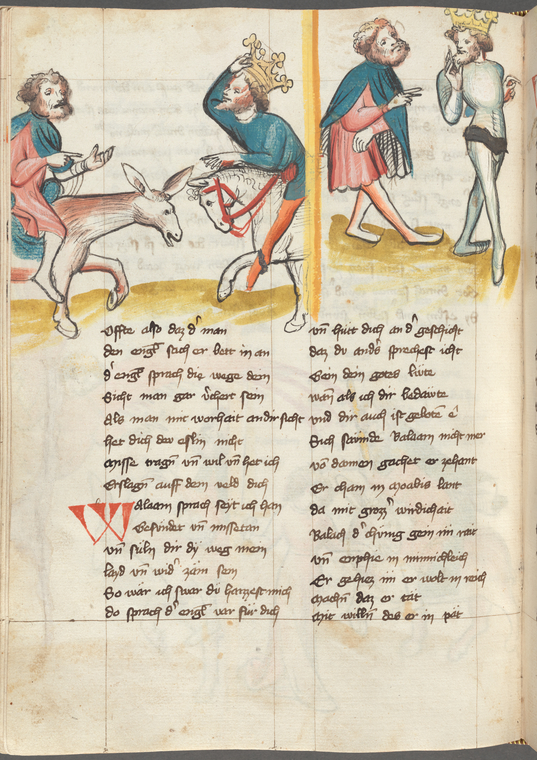 Offte also daz d' man
den engl sach er bett in an
d' engl sprach die wege dein
Sicht man gar v'chert sein
Als man mit worhait an dir sicht
het dich dev eslin nicht
misse tragñ vñ wil vñ het ich
Erslagñ auff dem veld dich
Walaam sprach seyt ich han
Gesundet vñ missetan
vñ süln dir dy weg mein
layd vñ wid' zäm sein
So war ich swar dv hayzzest mich
do sprach d' engl var für dich
vñ hüt dich an d' geschicht
daz dv and's sprechest icht
Gein dem gotes lüte
wañ als ich dir bedäwte
vnd dir auch ist gebotē ē
Sich sawmde balaam nicht mer
võ dannen gachet er zehant
Er cham in moabis lant
da mit grozz' wirdichait
Balach d' chünig gein im rait
vñ enphie in minnichleich
Er gehiez im er wolt in reich
machñ daz er tät
Mit willñ des er in pät